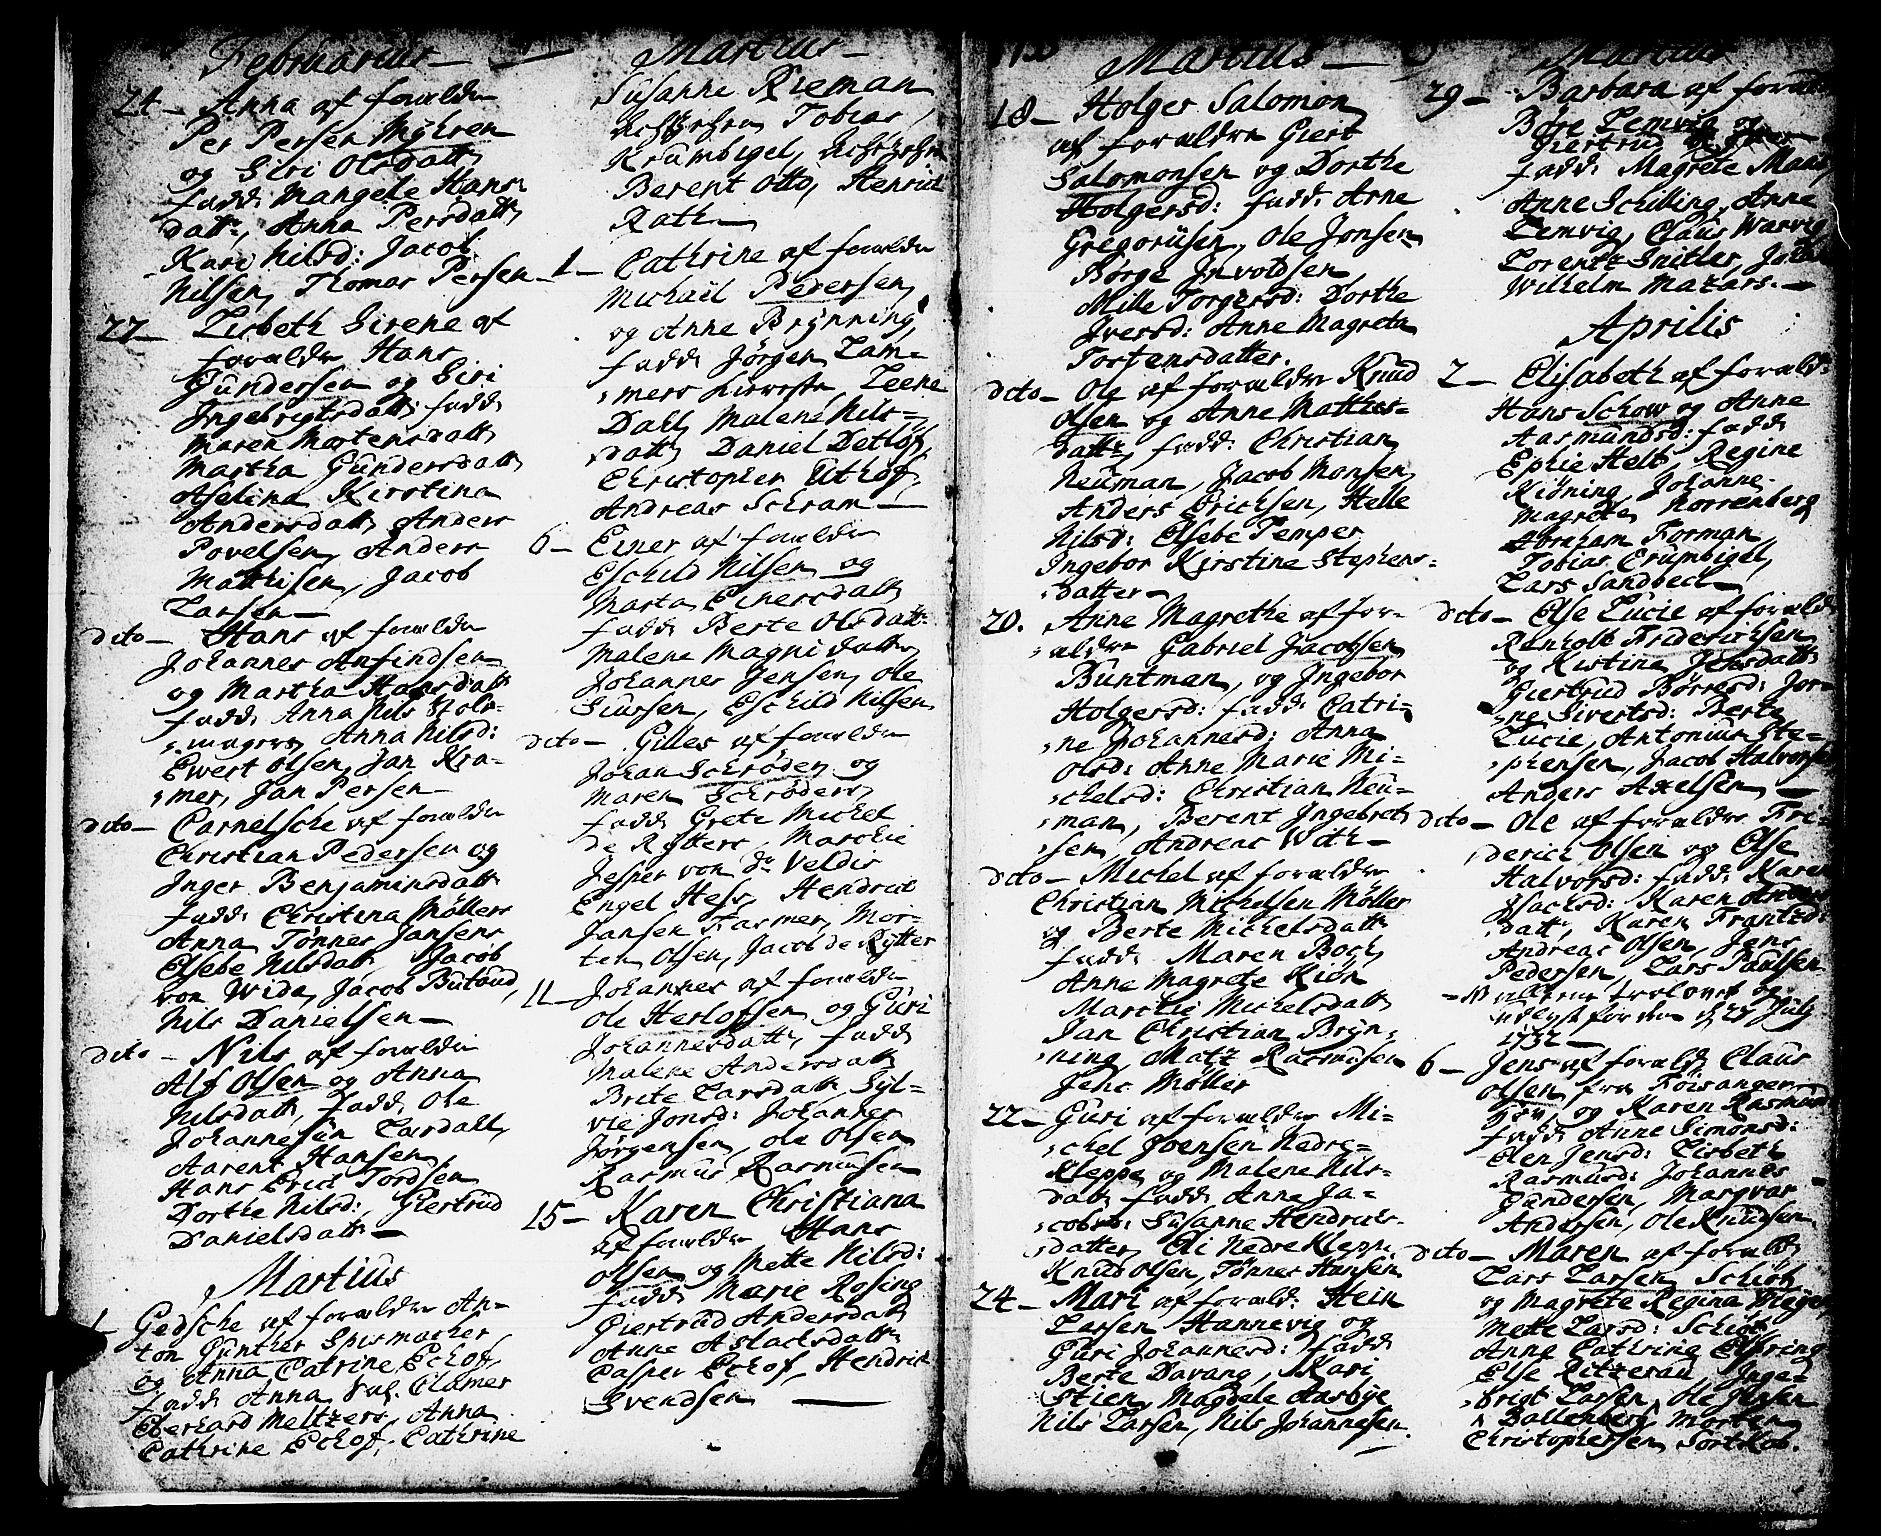 Februarius
24 - Anna af forældre
Per Persen Mÿhren
og Siri Olsdatt
fadd: Mangele Hans
datt, Anna Persdatt
Kari Nilsd: Jacob
Nilsen, Thomas Persen
27 - Lisbeth Sirene af
forældre Hans
Gundersen og Siri
Ingebrigtsdatt: fadd:
Maren Mortensdatt
Martha Gundersdatt
Aselina Kirstina
Andersdatt, Anders
Povelsen, Anders
Matthisen, Jacob
Larsen
dito - Hans af forældre
Johannes Anfindsen
og Martha Hansdatt
fadd: Anna Nils Hols-
magers, Anna Nilsd:
Ewert Olsen, Jan Kra-
mer, Jan Persen
dito - Carnelsche af forældre
Christian Pedersen og
Inger Benjaminsdatt
fadd: Christina Möllers
Anna Tønnes Jansens
Elsebe Nilsdatt, Jacob
von Wida, Jacob Butaud,
Nils Danielsen
dito - Nils af forældre
Alf Olsen og Anna
Nilsdatt, fadd: Ole
Johannesen Lærdall,
Aarent Hansen,
Hans Erick Tordsen
Dorthe Nilsd:, Giertrud
Danielsdatt
Martius
1 Gedsche af forældre An-
ton Gunther Spormacher
og Anna Catrine Eckof,
fadd: Anna Clamer
Eberhard Meltzers, Anna
Cathrine Eckof, Cathrine
Martius
Susanne Rieman
Tobias
Krumbigel,
Berent Otto, Henrich
Rath
1 - Cathrine af forældre
Michaël Pedersen
og Anne Brÿnning
fadd: Jørgen Lam-
mers Leene
Dahl, Malene Nils-
datt, Daniel Detlof,
Christopher Uthof,
Andreas Schram
6 - Einer af forældre
Eschild Nilsen og
Marta Einersdatt
fadd: Berte Olsdatt:
Malene Magnidatt
Johannes Jensen, Ole
Siursen, Eschild Nilsen
dito - Gilles af forældre
Johan Schrøder og
Maren Schrøders
fadd: Grete Michel
de Rÿtters, Marchie
Jesper von dr Veldis
Engel Hess, Hendrich
Jansen Fasmer, Mor-
ten Olsen, Jacob de Rÿtter
11 - Johannes af forældre
Ole Herlofsen og Guri
Johannesdatt, fadd:
Malene Andersdatt
Brite Larsdatt Sÿl-
vie Jonsd: Johannes
Jørgensen, Ole Olsen
Rasmus Rasmusen
15 - Karen Christiana
af forældre Hans
Olsen og Mette Nilsd:
fadd: Marie Rosing
Giertrud Andersdatt
Anne Aslachsdatt
Casper Eckof, Hendrich
Svendsen
Martius
18 - Holger Salomon
af forældre Giert
Salomonsen og Dorthe
Holgersd: fadd: Arne
Gregoriusen, Ole Jonsen
Børge Involdsen
Mille Torgersd: Dorthe
Iversd: Anne Magreta
Tostensdatter.
dito - Ole af forældre Knud
Olsen og Anne Mathis-
datt, fadd: Christian
Neuman, Jacob Monsen
Anders Erichsen, Helle
Nilsd: Elsebe Temper
Ingebor Kirstine Stephens-
datter
20. Anne Magrethe af for-
ældre Gabriel Jacobsen
Buntman, og Ingebor
Holgersd: fadd: Catri-
ne Johannesd: Anna
Olsd: Anne Marie Mi-
chelsd: Christian Neu-
man, Berent Ingebret-
sen, Andreas With
dito - Michel af forældre
Christian Michelsen Møller
og Berte Michelsdatt
fadd: Maren Boch
Anne Magrete Kiön
Marchie Michelsdatt
Jan Christian Brÿn-
ning, Matz Rasmusen
Jens Möller
22 - Guri af forældre Mi-
chel Joensen Nedre-
Kleppe og Malene Nils-
datt fadd: Anne Ja-
cobsd: Susanne Hendrichs-
datter, Eli Nedre Kleppe
Knud Olsen, Tønnes Hansen
24 - Mari af foræld: Stein
Larsen Hannevig og
Guri Johannesd: fadd:
Berte Davang, Kari
Stien, Magdele Aasbÿe
Nils Larsen, Nils Johannesen.
Martius
29 - Barbara af foræld
Børe Lemvig og
Giertrud
fadd: Magrete
Anne Schilling, Anne
Lemvig, Claus Warvig
Lorentz Snitler, Johan
Wilhelm Mazars.
Aprilis
2 - Elisabeth af foræld:
Hans Schow og Anne
Aasmundsd: fadd:
Ephie Helt, Regine
Kiöning, Johanne
Magrete Norrenberg
Abraham Forman
Tobias Crumbigel,
Lars Sandbech
dito - Else Lucie af foræld:
Renholt Friderichsen
og Kistina Jensdatt
Giertrud Børresd: Jor-
ne Sivertsd: Berte
Lucie, Antonius Ste-
phensen, Jacob Halvorsen
Anders Axelsen
dito - Ole af forældre Fri-
derich Olsen og Else
Halvorsd: fadd: Karen
Isachsd: Karen Anders
datt, Karen Frantzd:
Andreas Olsen, Jens
Pedersen, Lars Paulsen
trolovet og
for dem d 27 Julj
1732
6 - Jens af foræld: Claus
Olsen fra Foisanger
og Karen Rasmusd
fadd: Anne Simonsd:
Elen Jensd: Lisbeth
Rasmusd: Johannes
Gundersen, Marqvar
Andersen, Ole Knudsen
dito - Maren af foræld:
Lars Larsen Schiöt
og Magrete Regina Meÿer
Mette Larsd: Schiöt
Anne Cathrine Elfring
Else Ritzerau, Inge-
brigt Larsen, Ole Jensen
Ballenberg, Morten
Christophersen Sortkob.